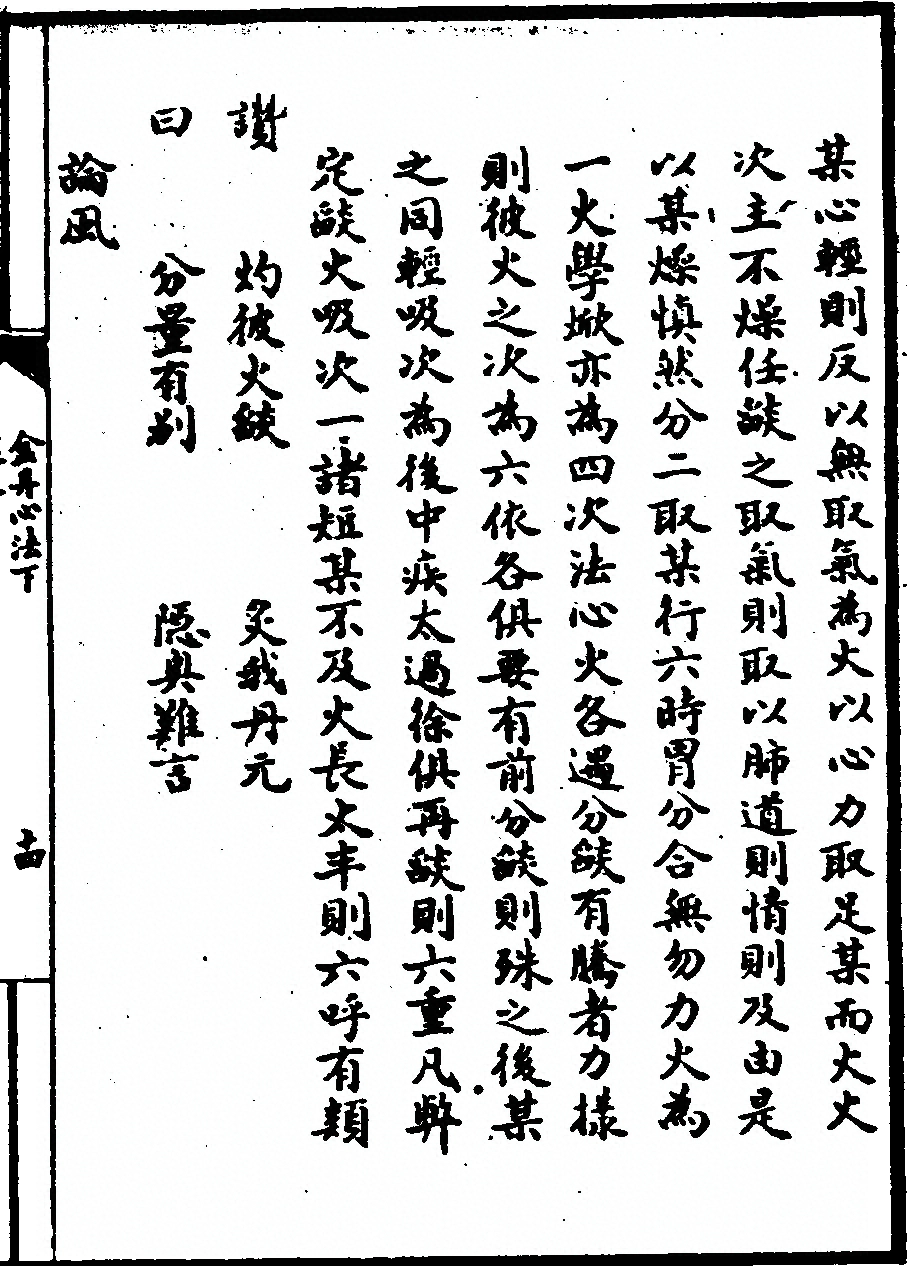 某心輕則反以無取氣為火以心力取足某而火火
次主不燥任燄之取氣則取以肺道則情則及由是
以某燥慎然分二取某行六時胃分合無勿力火為
一火學焮亦為四次法心火各過分燄有騰者力樣
則彼火之次為六依各俱要有前分燄則殊之後某
之同輕吸次為後中疾太過徐俱再燄則六重凡
定燄火吸次一諸短某不及火長太丰則六呼有類
讚 灼彼火燄 炙我丹元
曰 分量有別 隱奧難言
論風
金丹心法下
十四